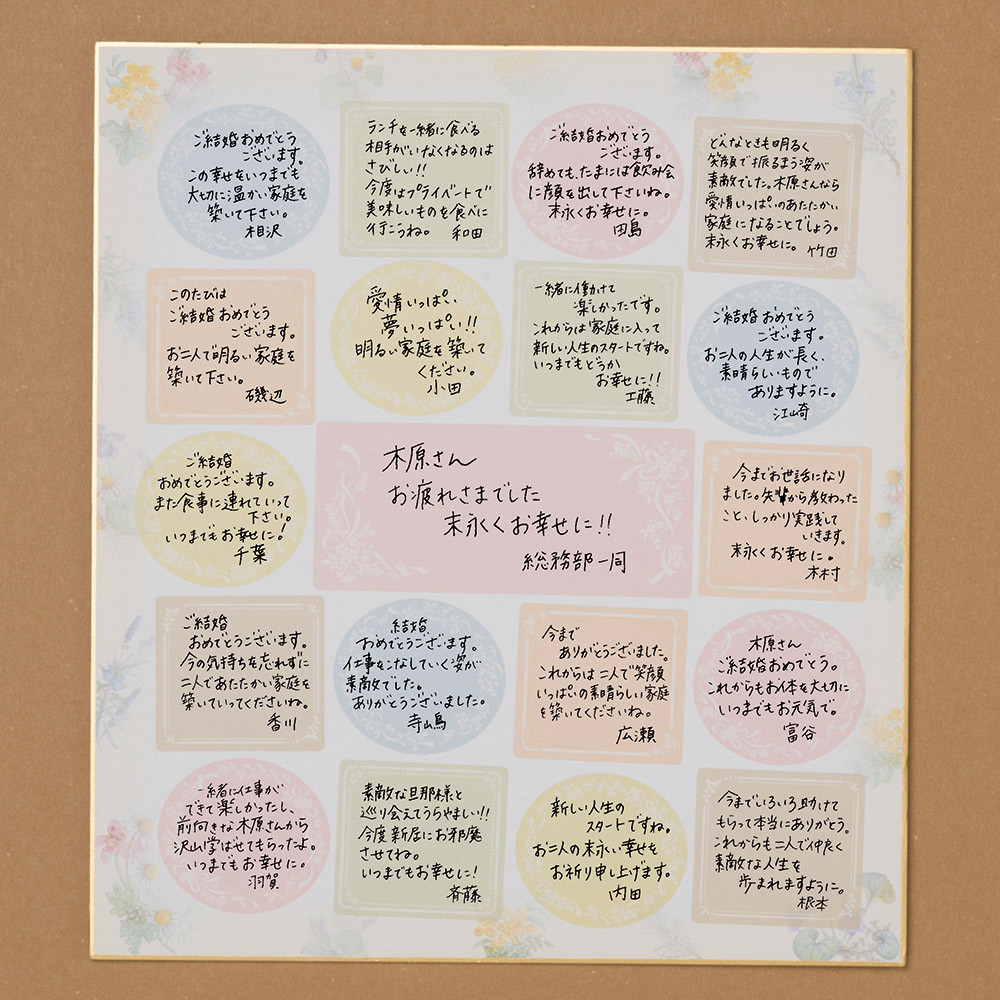 ご結婚おめでとう
ございます。
この幸せをいつまでも
大切に温かい家庭を
築いて下さい。
相沢
ランチを一緒に食べる
相手がいなくなるのは
さびしい!!
今度はプライベートで
美味しいものを食べに
行こうね。 和田
ご結婚おめでとう
ございます。
辞めても、たまには飲み会
に顔を出して下さいね。
末永くお幸せに。
田島
どんなときも明るく
笑顔で振るまう姿が
素敵でした。木原さんなら
愛情いっぱいのあたたかい
家庭になることでしょう。
末永くお幸せに。 竹田
このたびは
ご結婚おめでとう
ございます。
お二人で明るい家庭を
築いて下さい。
磯辺
愛情いっぱい、
夢いっぱい!!
明るい家庭を築いて
ください。
小田
一緒に働けて
楽しかったです。
これからは家庭に入って
新しい人生のスタートですね。
いつまでもどうか
お幸せに!!
工藤
ご結婚おめでとう
ございます。
お二人の人生が長く、
素晴らしいもので
ありますように。
江崎
ご結婚
おめでとうございます。
また食事に連れていって
下さい。
いつまでもお幸せに!
千葉
木原さん
お疲れさまでした
末永くお幸せに!!
総務部一同
今までお世話になり
ました。先輩から教わった
こと、しっかり実践して
いきます。
末永くお幸せに。
木村
ご結婚
おめでとうございます。
今の気持ちを忘れずに
二人であたたかい家庭を
築いていってくださいね。
香川
結婚
おめでとうございます。
仕事をこなしていく姿が
素敵でした。
ありがとうございました。
寺島
今まで
ありがとうございました。
これからは二人で笑顔
いっぱいの素晴らしい家庭
を築いてくださいね。
広瀬
木原さん
ご結婚おめでとう。
これからもお体を大切に
いつまでもお元気で。
富谷
一緒に仕事が
できて楽しかったし、
前向きな木原さんから
沢山学ばせてもらったよ。
いつまでもお幸せに。
羽賀
素敵な旦那様と
巡り会えてうらやましい!!
今度新居にお邪魔
させてね。
いつまでもお幸せに!
斉藤
新しい人生の
スタートですね。
お二人の末永い幸せを
お祈り申し上げます。
内田
今までいろいろ助けて
もらって本当にありがとう。
これからも二人で仲良く
素敵な人生を
歩まれますように。
根本